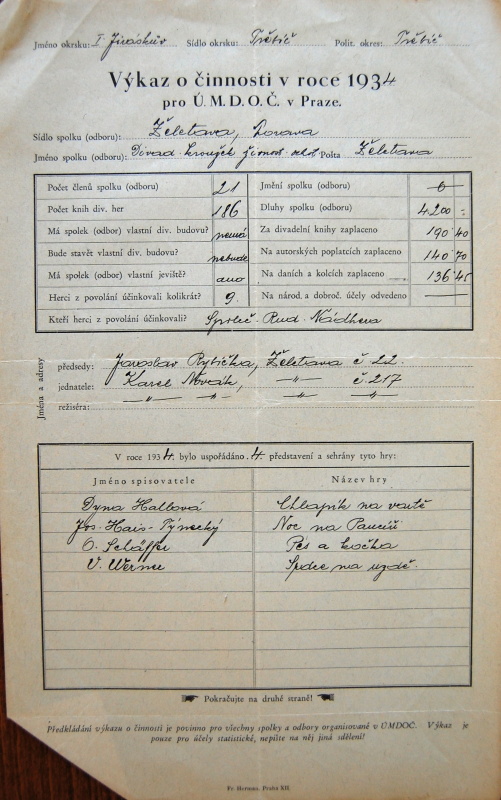 Jméno okrsku: I. Jiráskův Sídlo okrsku: Třebíč Polit. okres: Třebíč
Výkaz o činnosti v roce 1934
pro Ú.M.D.O.Č. v Praze.
Sídlo spolku (odboru): Želetava, Morava
Jméno spolku (odboru): Divad. kroužek Pošta Želetava
Počet členů spolku (odboru) 21 Jmění spolku (odboru) 0
Počet knih div. her 186 Dluhy spolku (odboru) 4200 -
Má spolek (odbor) vlastní div. budovu? nemá Za divadelní knihy zaplaceno 190 40
Bude stavět vlastní div. budovu? nebude Na autorských poplatcích zaplaceno 140 70
Má spolek (odbor) vlastní jeviště? ano Na daních a kolcích zaplaceno 136 45
Herci z povolání účinkovali kolikrát? 9. Na národ. a dobroč. účely odvedeno —
Kteří herci z povolání účinkovali? Společ. Rud. Nádhera
Jména a adresy
předsedy: Jaroslav Rybička, Želetava č. 22.
jednatele: Karel Novák, —"— č. 217
režiséra: —"— —"— —"— —"—
V roce 1934. bylo uspořádáno 4. představení a sehrány tyto hry:
Jméno spisovatele Název hry
Hallová Chlapík na vartě
Jos. Hais-Týnecký Noc na
O. Schäffer Pes a kočka
V. Werner Srdce na uzdě.
Pokračujte na druhé straně!
Předkládání výkazu o činnosti je povinno pro všechny spolky a odbory organisované v ÚMDOČ. Výkaz je
pouze pro účely statistické, nepište na něj jiná sdělení!
Fr. Herman, Praha XII.